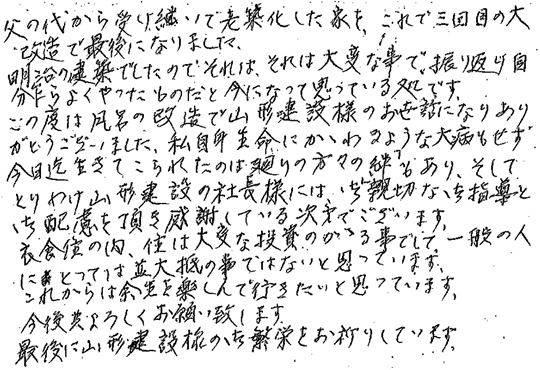 父の代から受け継いで老築化した家を、これで三回目の大
改造で最後になりました、
明治の建築でしたのでそれは、それは大変な事で、振り返り自
分乍らよくやったものだと今になって思っている処です。
この度は風呂の改造で山形建設様のお世話になりあり
がとうございました、私自身生命にかゝわるような大病もせず
今日迄生きてこられたのは廻りの方々の絆もあり、そして
とりわけ山形建設の社長様には、ご親切なご指導と
ご配慮を頂き感謝している次才でございます。
衣食住の内、住は大変な投資のかゝる事でして一般の人
にとっては並大抵の事ではないと思っています、
これからは余生を楽しんで行きたいと思っています、
今後共よろしくお願い致します
最後に山形建設様のご繁栄をお祈りしています、